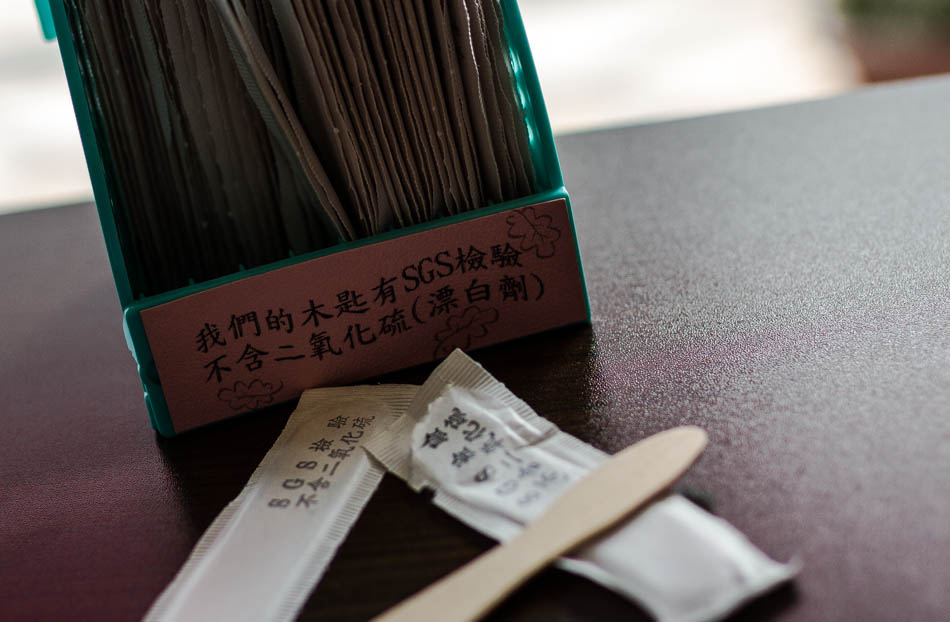 我們的木匙有SGS檢驗
不含二氧化硫(漂白劑)
SGS檢驗
不含二氧化硫